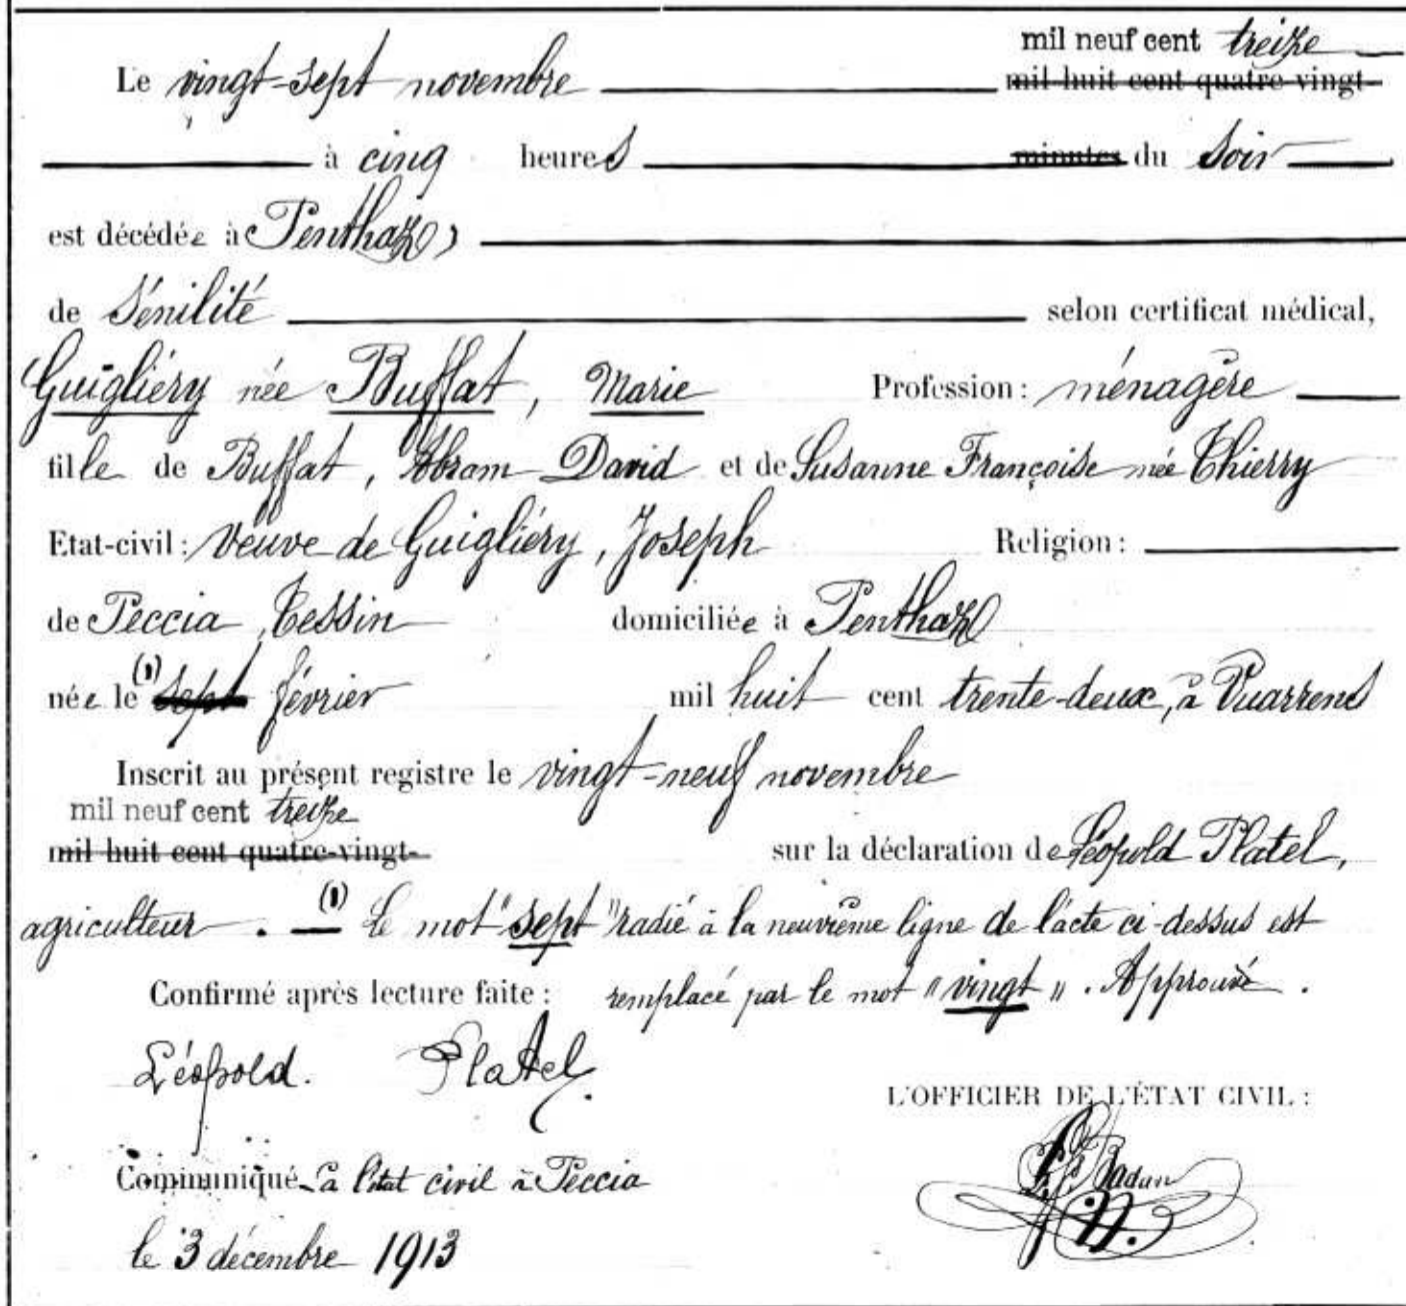 mil neuf cent treize
Le vingt-sept novembre mil huit cent quatre-vingt-
à cinq heures minutes du soir
est décédée à Penthaz,
de Sénilité selon certificat médical,
Guigliéry née Buffat, Marie Profession : ménagère
fille de Buffat, Abram David et de Susanne Françoise née Thierry
Etat-civil : Veuve de Guigliéry, Joseph Religion :
de Peccia, Tessin domiciliée à Penthaz
née le (1) sept février mil huit cent trente-deux, à Vuarrens
Inscrit au présent registre le vingt-neuf novembre
mil neuf cent treize
mil huit cent quatre-vingt- sur la déclaration de Léopold Platel,
agriculteur. — (1) Le mot "sept" radié à la neuvième ligne de l'acte ci-dessus est
Confirmé après lecture faite : remplacé par le mot "vingt". Approuvé.
Léopold. Platel.
L'OFFICIER DE L'ÉTAT CIVIL :
Badan
Communiqué à l'état civil à Peccia
le 3 décembre 1913